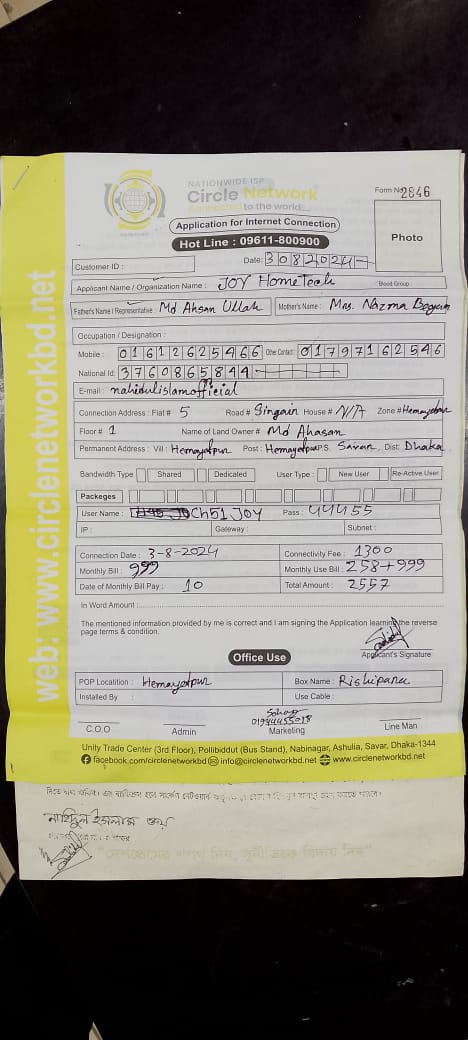 web: www.circlenetworkbd.net
NATIONWIDE ISP
Circle Network
Connected to the world...
Form No 2846
Application for Internet Connection
Hot Line : 09611-800900
Photo
Customer ID :
Date: 3 0 8 2 0 2 4
Applicant Name / Organization Name : JOY HomeTech Blood Group :
Father's Name / Representative Md Ahsan Ullah Mother's Name : Mrs. Nazma Begum
Occupation / Designation :
Mobile : 0 1 6 1 2 6 2 5 4 6 6 Other Contact : 0 1 7 9 7 1 6 2 5 4 6
National Id: 3 7 6 0 8 6 5 8 4 4
E-mail : nahidulislamofficial
Connection Address : Flat # 5 Road # Singair House # N/A Zone # Hemayetpur
Floor # 1 Name of Land Owner # Md Ahasan
Permanent Address : Vill : Hemayetpur Post : Hemayetpur P.S. Savar Dist: Dhaka
Bandwidth Type Shared Dedicated User Type : New User Re-Active User
Packeges
User Name : Ch51 JOY Pass : 44455
IP : Gateway : Subnet :
Connection Date : 3-8-2024 Connectivity Fee : 1300
Monthly Bill : 999 Monthly Use Bill : 258+999
Date of Monthly Bill Pay : 10 Total Amount : 2557
In Word Amount :
The mentioned information provided by me is correct and I am signing the Application learning the reverse
page terms & condition.
Applicant's Signature
Office Use
POP Locatition : Hemayetpur Box Name : Rishipara
Installed By : Use Cable :
Sohag
01944455018
C.O.O Admin Marketing Line Man
Unity Trade Center (3rd Floor), Pollibiddut (Bus Stand), Nabinagar, Ashulia, Savar, Dhaka-1344
facebook.com/circlenetworkbd info@circlenetworkbd.net www.circlenetworkbd.net
নাহিদুল ইসলাম জয়